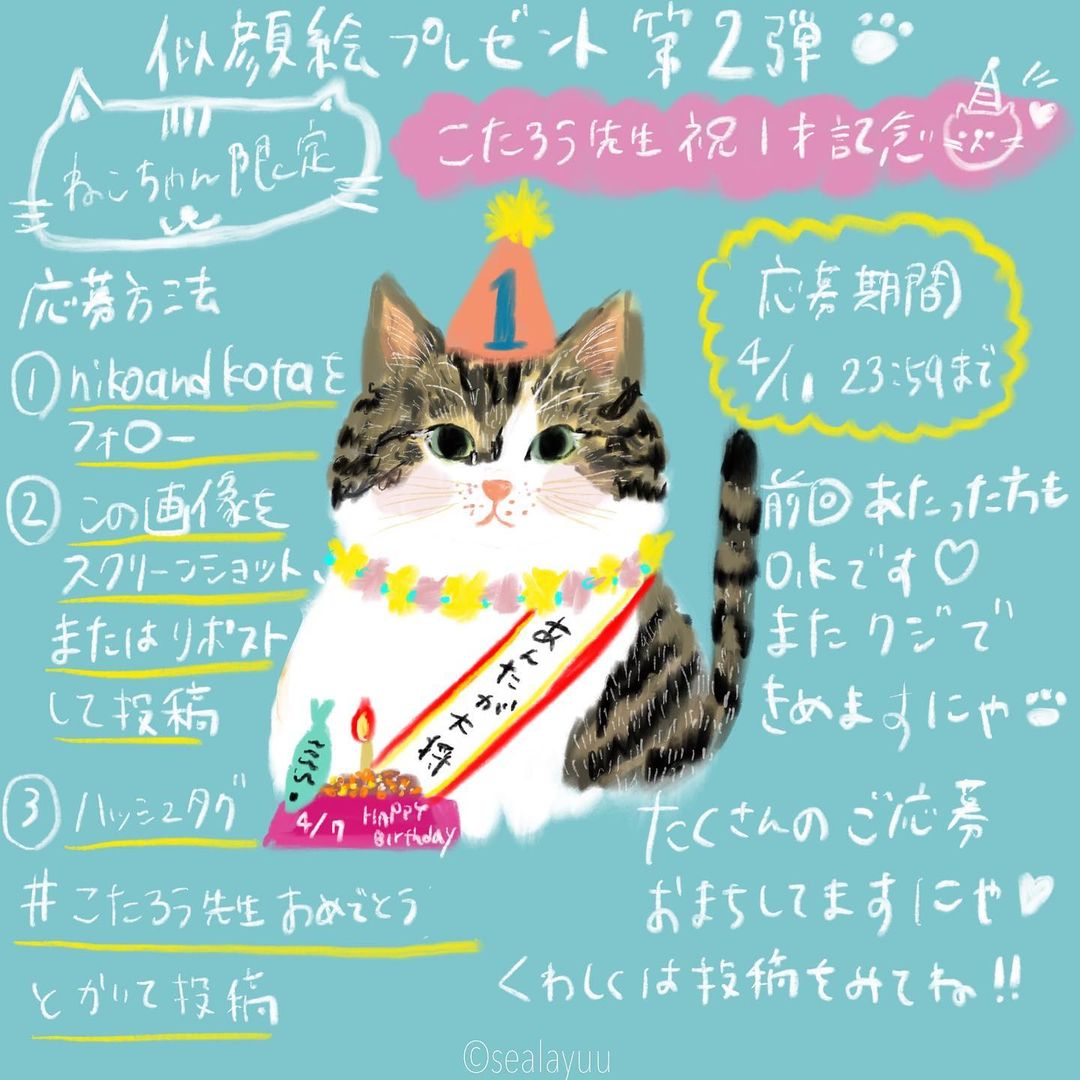 似顔絵プレゼント第2弾
ねこちゃん限定
こたろう先生祝1才記念
応募方法
①nikoandkotaを
フォロー
②この画像を
スクリーンショット、
またはリポスト
して投稿
③ハッシュタグ
#こたろう先生おめでとう
とかいて投稿
1
あんたが大将
4/7 HAPPY
Birthday
応募期間
4/11 23:59まで
前回あたった方も
O,kです♡
またクジで
きめますにゃ
たくさんのご応募
おまちしてますにゃ♥
くわしくは投稿をみてね!!
©sealayuu